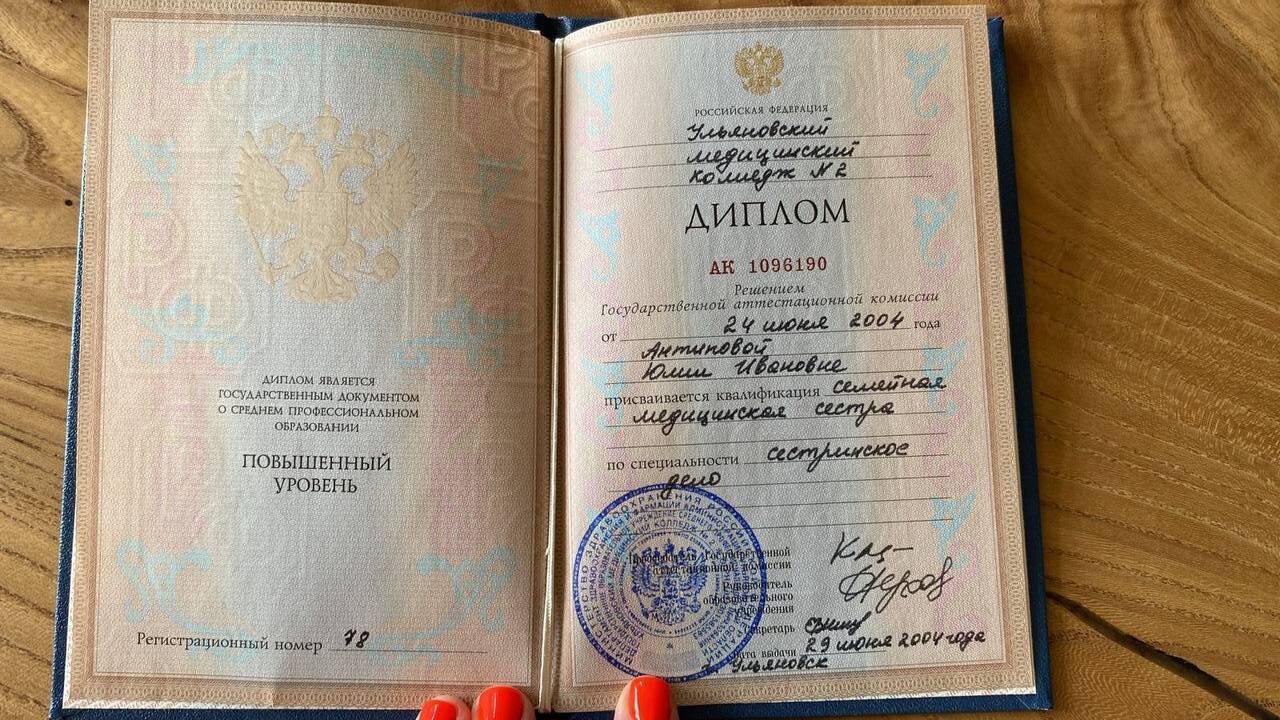 ДИПЛОМ ЯВЛЯЕТСЯ
ГОСУДАРСТВЕННЫМ ДОКУМЕНТОМ
О СРЕДНЕМ ПРОФЕССИОНАЛЬНОМ
ОБРАЗОВАНИИ
ПОВЫШЕННЫЙ
УРОВЕНЬ
Регистрационный номер 78
РОССИЙСКАЯ ФЕДЕРАЦИЯ
Ульяновский
медицинский
колледж N2
ДИПЛОМ
АК 1096190
Решением
Государственной аттестационной комиссии
от 24 июня 2004 года
Антиповой
Юлии Ивановне
присваивается квалификация семейная
медицинская сестра
по специальности сестринское
дело
Председатель Государственной
аттестационной комиссии
Руководитель
образовательного
учреждения
Секретарь
Дата выдачи 29 июня 2004 года
г. Ульяновск